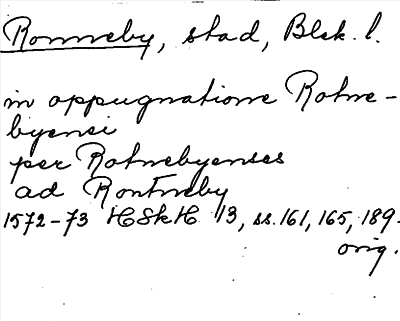 Ronneby, stad, Blek. l.
in oppugnatione Rotne-
byensi
per Rotnebyenses
ad Rontneby
1572-73 HSkH 13, ss. 161, 165, 189.
orig.